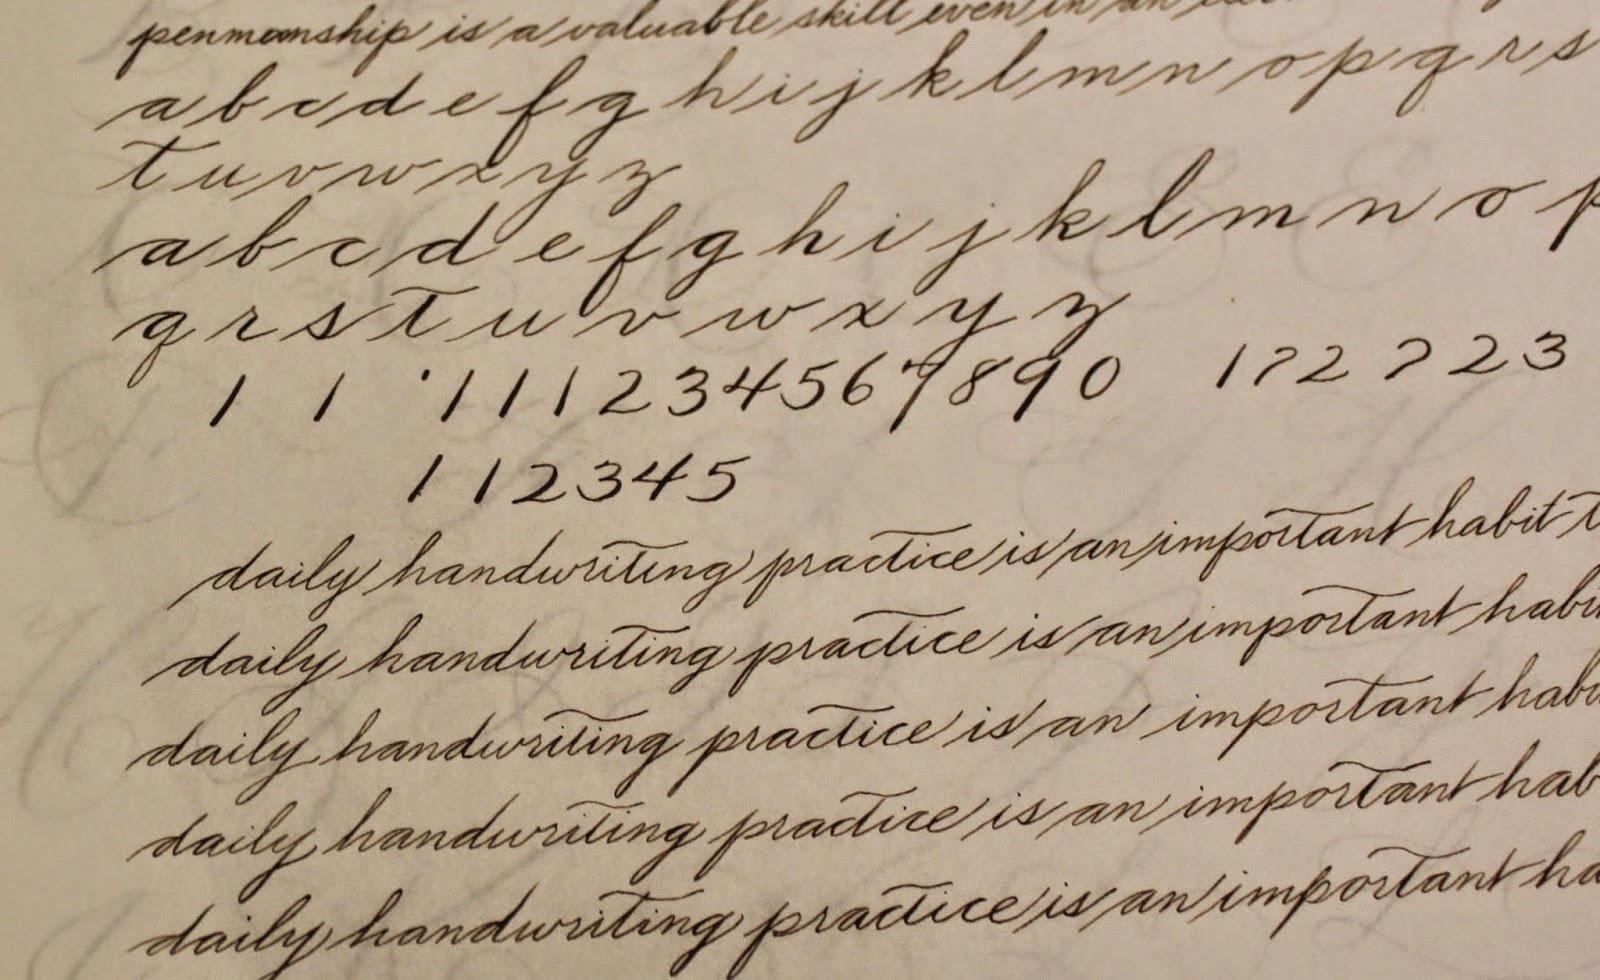 penmanship is a valuable skill even in an
a b c d e f g h i j k l m n o p q r s
t u v w x y z
a b c d e f g h i j k l m n o p
q r s t u v w x y z
1 1 1 1 1 2 3 4 5 6 7 8 9 0 1 2 2 2 3
1 1 2 3 4 5
daily handwriting practice is an important habit t
daily handwriting practice is an important habi
daily handwriting practice is an important habi
daily handwriting practice is an important hab
daily handwriting practice is an important ha